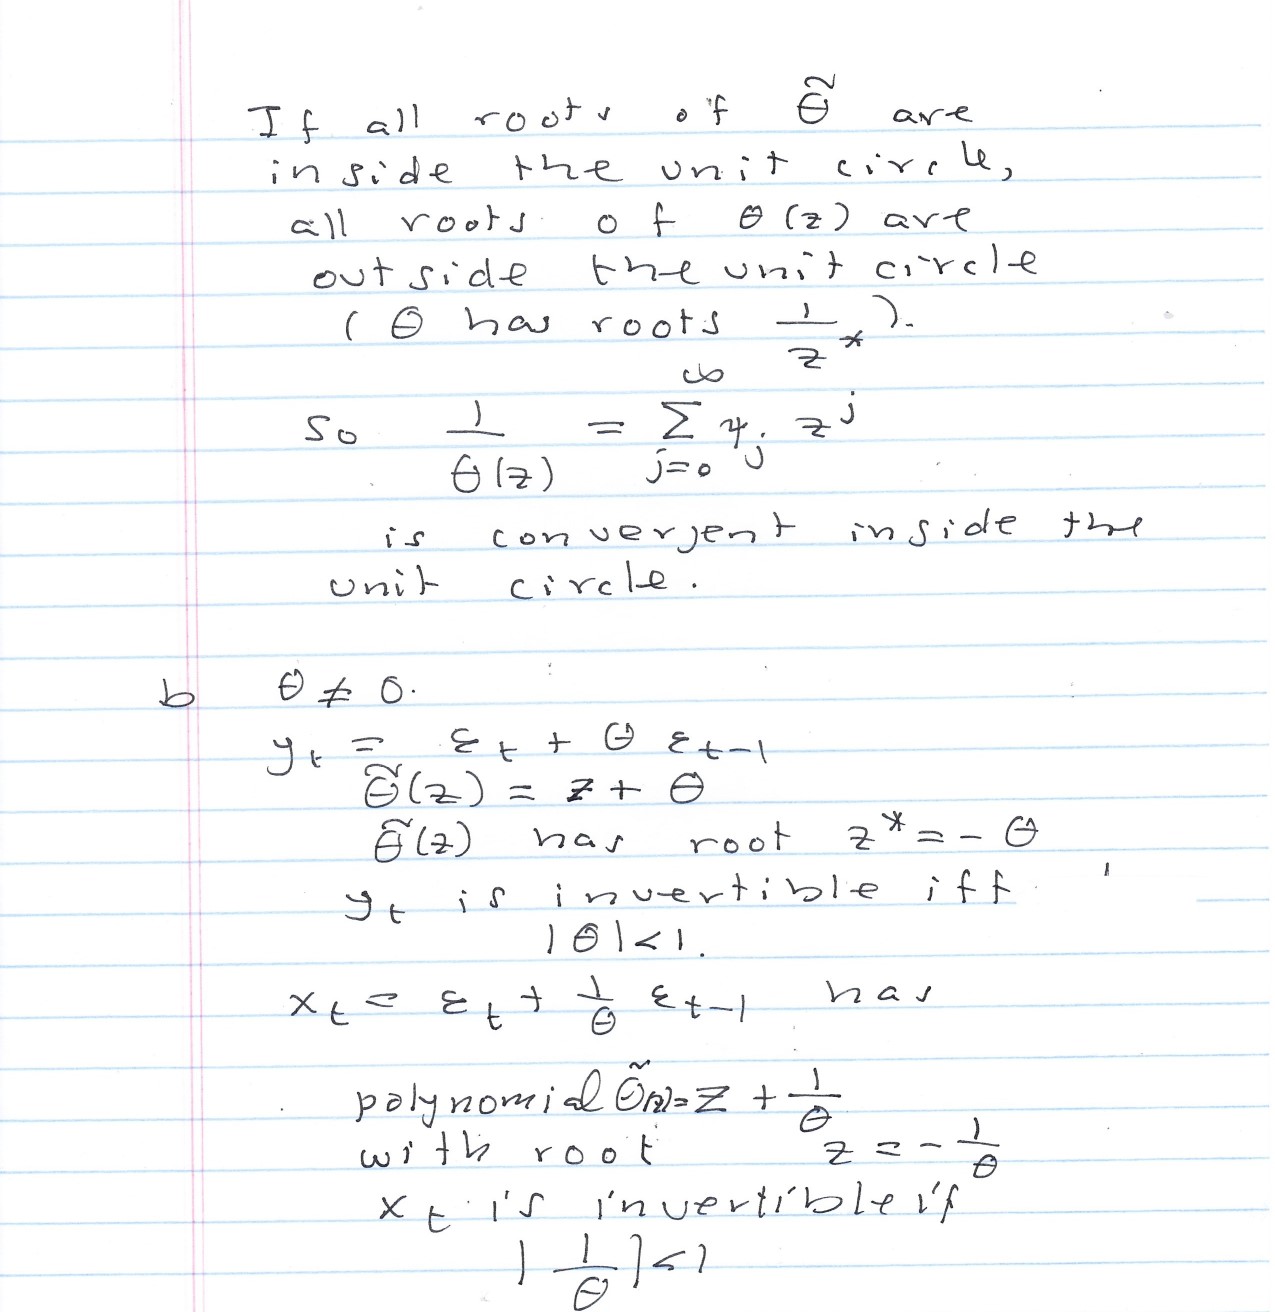 If all roots of θ̃ are
inside the unit circle,
all roots of θ(z) are
outside the unit circle
(θ has roots 1/z*).
So 1/θ(z) = ∑_{j=0}^{∞} ψ_j z^j
is convergent inside the
unit circle.
b θ ≠ 0.
y_t = ε_t + θ ε_{t-1}
θ̃(z) = z + θ
θ̃(z) has root z* = - θ
y_t is invertible iff
|θ|<1.
x_t = ε_t + 1/θ ε_{t-1} has
polynomial θ̃(z) = z + 1/θ
with root z = - 1/θ
x_t is invertible if
|1/θ|<1